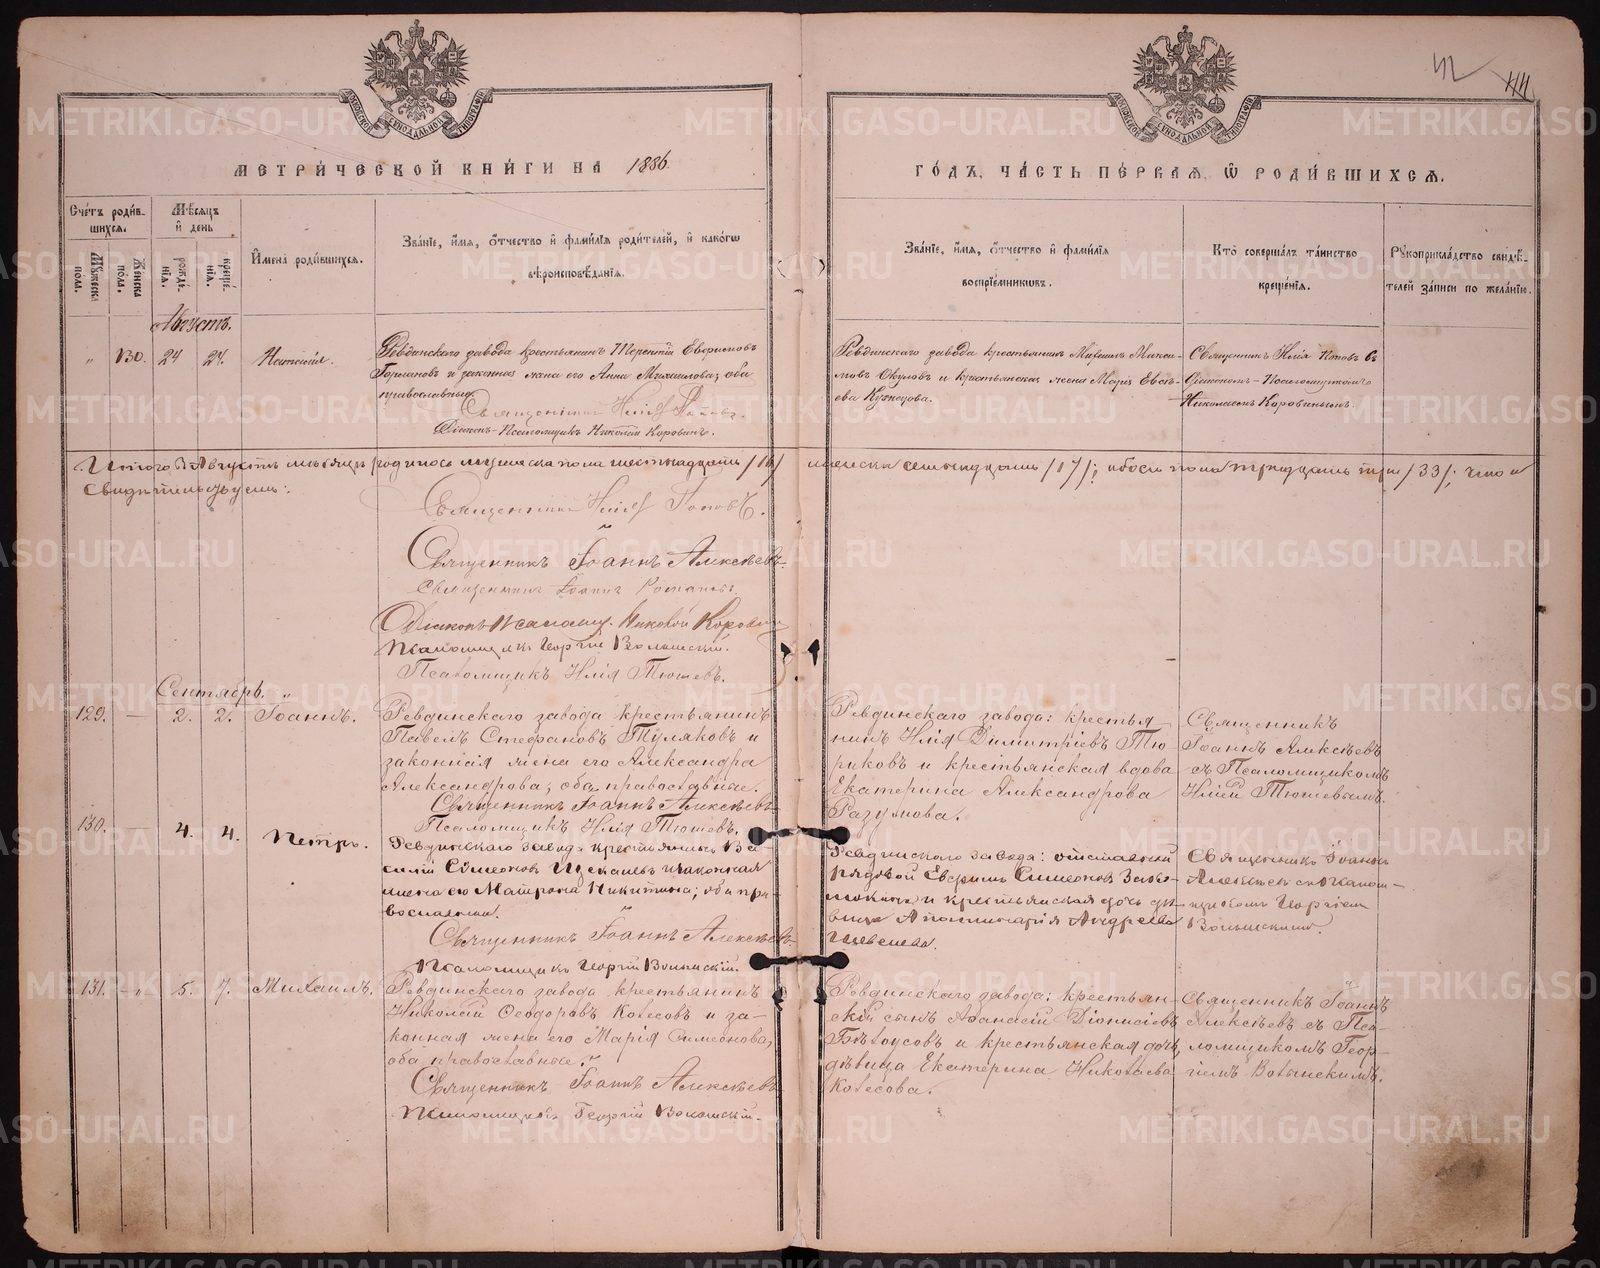 42
44
СѴНОДАЛЬНОЙ
ТИПОГРАФІИ
МЕТРИ́ЧЕСКОЙ КНИ́ГИ НА 1886.
ГО́ДЪ, ЧА́СТЬ ПЕ́РВАЯ, Ѡ РОДИ́ВШИХСЯ.
Сче́тъ роди́в-
шихся.
Мѣ́сяцъ
и҆ де́нь
Мꙋжеска
пола.
Женска
пола.
рожде-
нїѧ.
креще́-
нїѧ.
И҆мена̀ роди́вшихсѧ.
Зва́нїе, и҆́мѧ, ѻ҆́тчество и҆ фами́лїѧ роди́телей, и҆ како́гѡ
вѣроисповѣ́данїѧ.
Зва́нїе, и҆́мѧ, ѻ҆́тчество и҆ фами́лїѧ
воспрїе́мникѡвъ.
Кто̀ соверша́лъ та́инство
креще́нїѧ.
Рꙋкоприкла́дство свидѣ́-
телей за́писи по жела́нїю.
Августъ.
" 130. 24 24. Наталія.
Ревдинскаго завода крестьянинъ Терентій
и законная жена его Анна Михаилова; оба
православные.
Священникъ Илія Поповъ.
Діаконъ-Псаломщикъ Николай Коровинъ.
Ревдинскаго завода крестьянинъ Михаилъ Макси-
мовъ Окуловъ и крестьянская жена Марія Евсѣ-
ева Кузнецова.
Священникъ Илія Поповъ съ
Діакономъ-Псаломщикомъ
Николаемъ Коровинымъ.
Итого въ Августѣ мѣсяцѣ родилось мужеска пола шестнадцать /16/ женска семнадцать /17/; обоего пола тридцать три /33/; что и
свидѣтельствуемъ:
Священникъ Илія Поповъ.
Священникъ Іоаннъ Алексѣевъ.
Священникъ Іоаннъ
Діаконъ Псаломщ. Николай Коровинъ
Псаломщикъ Георгій Волынскій.
Псаломщикъ Илія Тюшевъ.
Сентябрь. "
129. — 2. 2. Іоаннъ.
Ревдинскаго завода крестьянинъ
Павелъ Стефановъ Туляковъ и
законная жена его Александра
Александрова; оба православные.
Священникъ Іоаннъ Алексѣевъ
Псаломщикъ Илія Тюшевъ.
Ревдинскаго завода: крестья
нинъ Илія Димитріевъ Тю-
риковъ и крестьянская вдова
Екатерина Александрова
Разумова.
Священникъ
Іоаннъ Алексѣевъ
съ Псаломщикомъ
Иліей Тюшевымъ.
130. — 4. 4. Петръ.
Ревдинскаго завода крестьянинъ Ва-
силій Симеоновъ и законная
жена его Матрона Никитина; оба пра-
вославные.
Священникъ Іоаннъ Алексѣевъ.
Псаломщикъ Георгій Волынскій.
Ревдинскаго завода: отставной
рядовой Ефремъ Симеоновъ
и крестьянская дочь дѣ-
вица Аполлинарія Андреева
Священникъ Іоаннъ
Алексѣевъ съ Псалом-
щикомъ Георгіемъ
Волынскимъ.
131. — 5. 7. Михаилъ.
Ревдинскаго завода крестьянинъ
Николай Ѳеодоровъ Колесовъ и за-
конная жена его Марія Симеонова,
оба православные.
Священникъ Іоаннъ Алексѣевъ
Псаломщикъ Георгій Волынскій.
Ревдинскаго завода: крестьян-
скій сынъ Аѳанасій Діонисіевъ
Бѣлоусовъ и крестьянская дочь,
дѣвица Екатерина Николаева
Колесова.
Священникъ Іоаннъ
Алексѣевъ съ Пса-
ломщикомъ Геор-
гіемъ Волынскимъ.
METRIKI.GASO-URAL.RU